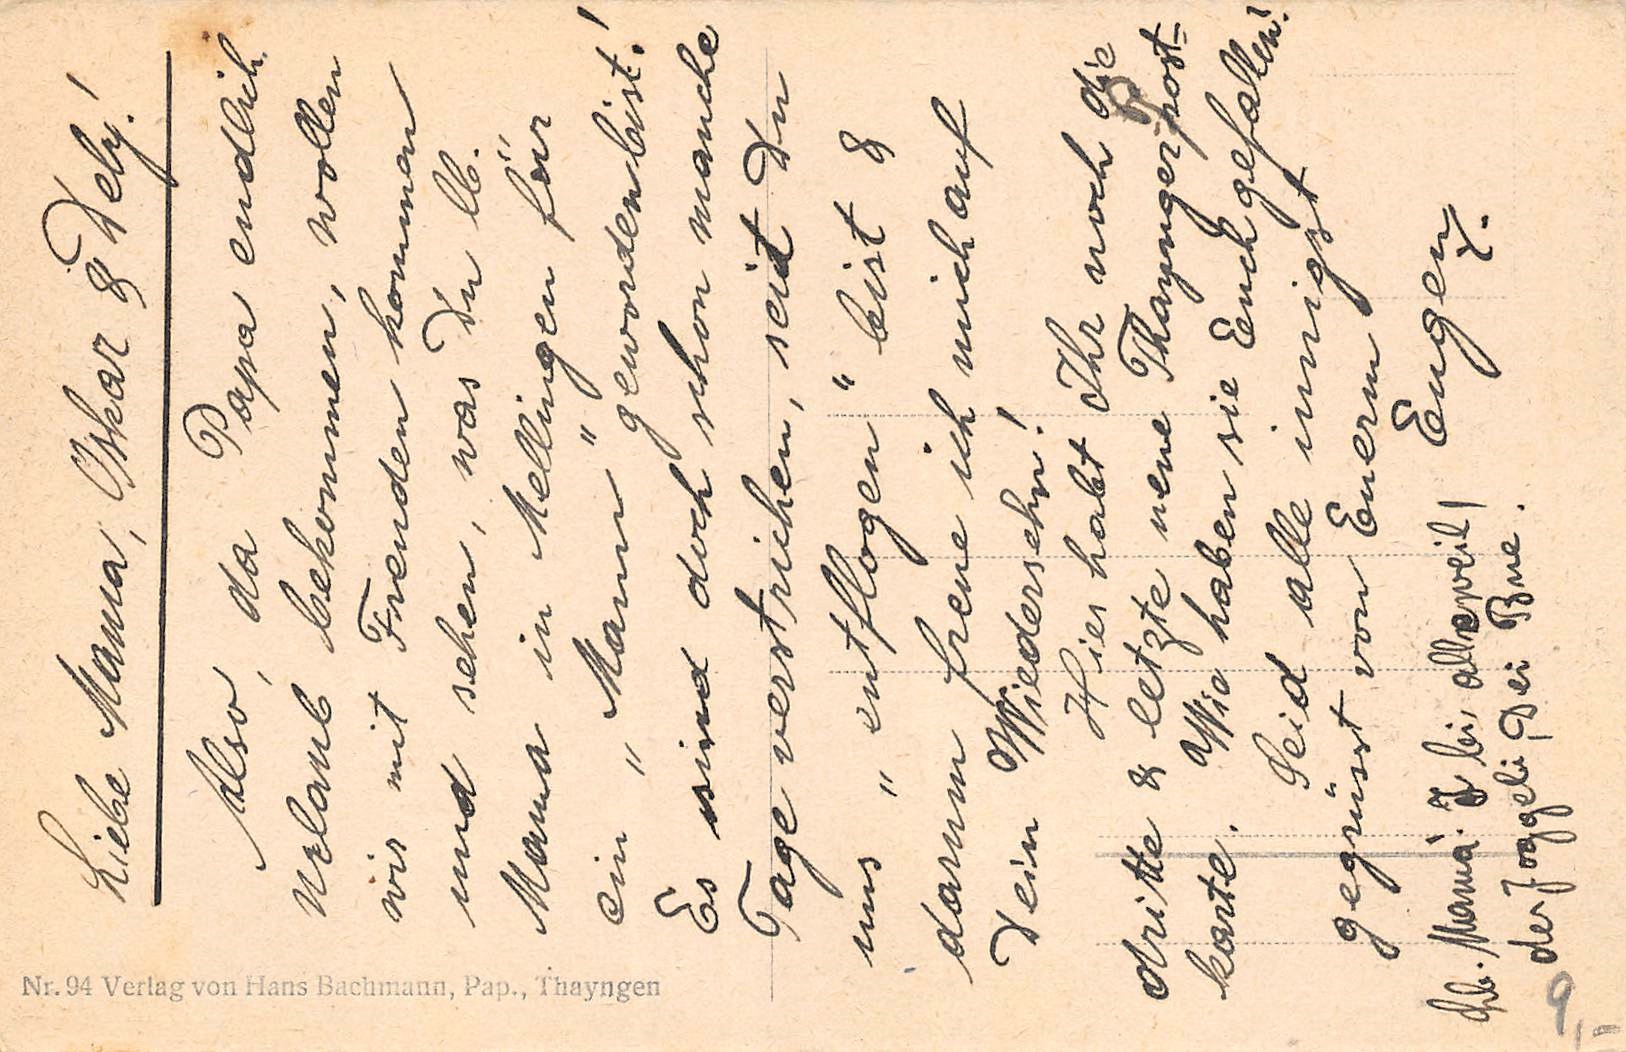 Liebe Mama, Oskar & Dely!
Also, da Papa endlich
Urlaub bekommen, wollen
wir mit Freuden kommen
und sehen, was Du lb.
Mama in Mellingen für
ein "Mann" geworden bist!
Es sind doch schon manche
Tage verstrichen, seit Du
uns "entflogen" bist &
darum freue ich mich auf
Dein Wiedersehn!
Hier habt Ihr noch die
dritte & letzte neue Thaynger post=
karte. Wie haben sie Euch gefallen?
Seid alle innigst
gegrüsst von Euerm Eugen
Lb. Mamá. I bi allewil
der Joggeli, Dei Bue.
Nr. 94 Verlag von Hans Bachmann, Pap., Thayngen
9,-